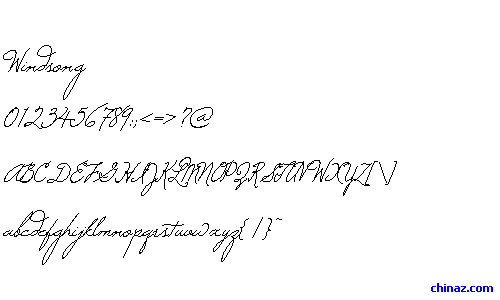 Windsong
0123456789:;<=>?@
ABCDEFGHIJKLMNOPQRSTUVWXYZ[\]
abcdefghijklmnopqrstuvwxyz{|}~
chinaz.com